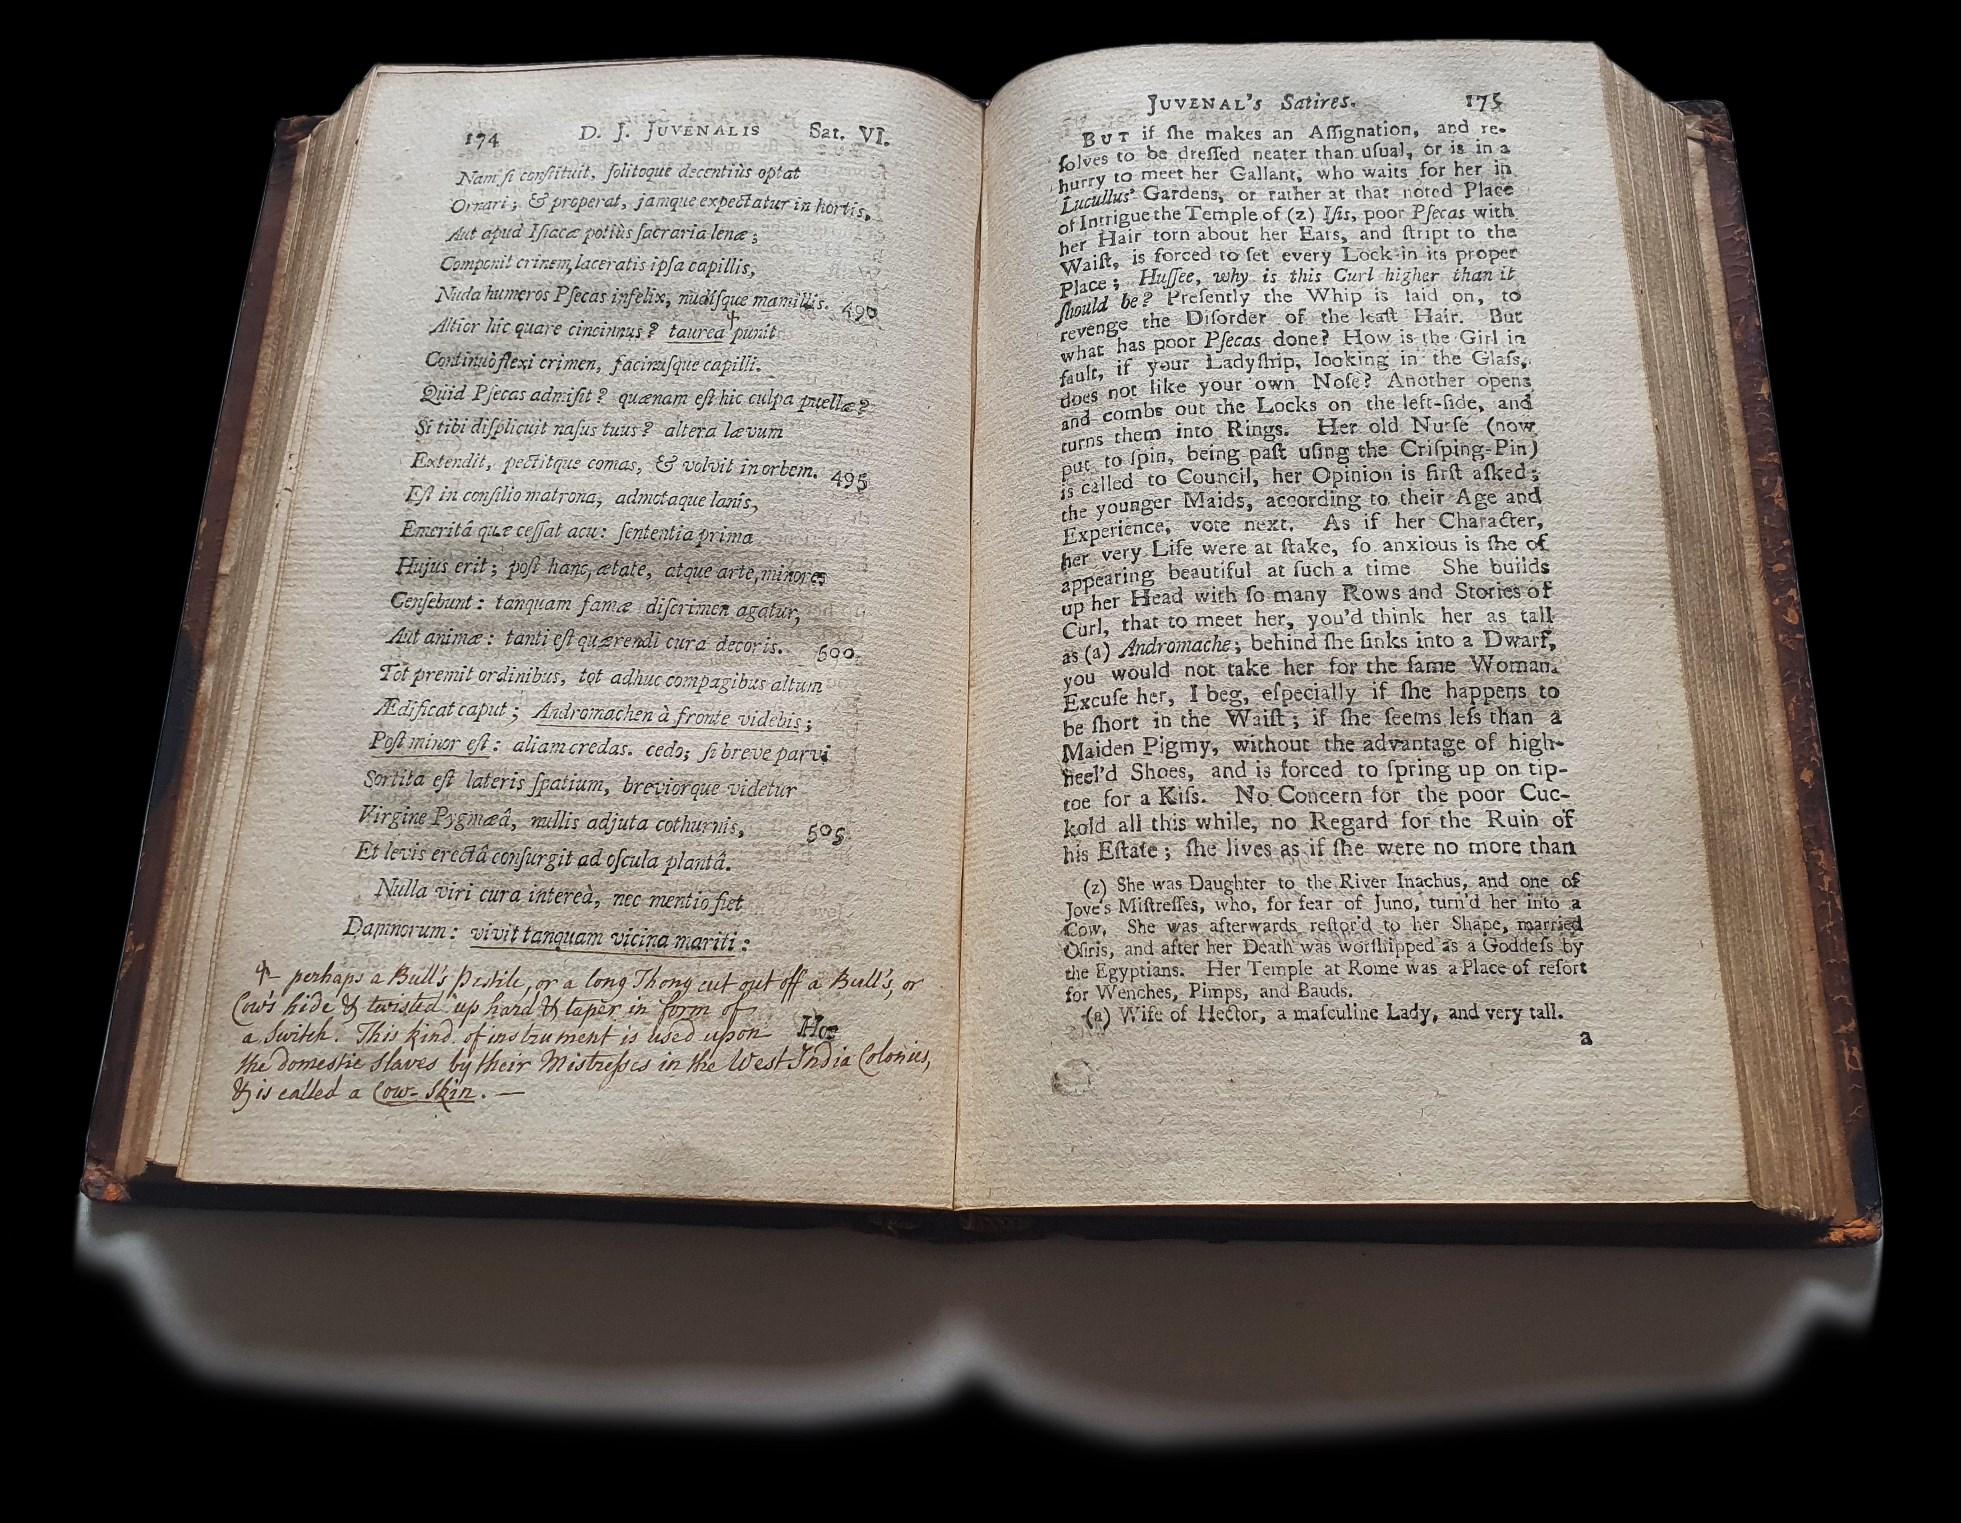 174 D. J. JUVENALIS Sat. VI.
Nam ſi conſtituit, ſolitoque decentiùs optat
Ornari; & properat, jamque expectatur in hortis,
Aut apud Iſiacæ potiùs ſacraria lenæ;
Componit crinem, laceratis ipſa capillis,
Nuda humeros Pſecas infelix, nudiſque mamillis. 490
Altior hic quare cincinnus? taurea punit
Continuò flexi crimen, facinuſque capilli.
Quid Pſecas admiſit? quænam eſt hic culpa puellæ?
Si tibi diſplicuit naſus tuus? altera lævum
Extendit, pectitque comas, & volvit in orbem. 495
Eſt in conſilio matrona, admotaque lanis,
Emeritâ quæ ceſſat acu: ſententia prima
Hujus erit; poſt hanc, ætate, atque arte, minores
Cenſebunt: tanquam famæ diſcrimen agatur,
Aut animæ: tanti eſt quærendi cura decoris. 500
Tot premit ordinibus, tot adhuc compagibus altum
Ædificat caput; Andromachen à fronte videbis;
Poſt minor eſt: aliam credas. cedo; ſi breve parvi
Sortita eſt lateris ſpatium, breviorque videtur
Virgine Pygmæâ, nullis adjuta cothurnis, 505
Et levis erectâ conſurgit ad oſcula plantâ.
Nulla viri cura intereà, nec mentio fiet
Damnorum: vivit tanquam vicina mariti:
perhaps a Bull's Pistile, or a long Thong cut out off a Bull's, or
Cow's hide & twisted up hard & taper in form of
a Switch. This kind of instrument is used upon Hoc
the domestic slaves by their Mistreſses in the West India Colonies,
& is called a Cow-Skin. —
JUVENAL's Satires. 175
BUT if ſhe makes an Aſſignation, and re-
ſolves to be dreſſed neater than uſual, or is in a
hurry to meet her Gallant, who waits for her in
Lucullus' Gardens, or rather at that noted Place
of Intrigue the Temple of (z) Iſis, poor Pſecas with
her Hair torn about her Ears, and ſtript to the
Waiſt, is forced to ſet every Lock in its proper
Place; Huſſee, why is this Curl higher than it
ſhould be? Preſently the Whip is laid on, to
revenge the Diſorder of the leaſt Hair. But
what has poor Pſecas done? How is the Girl in
fault, if your Ladyſhip, looking in the Glaſs,
does not like your own Noſe? Another opens
and combs out the Locks on the left-ſide, and
turns them into Rings. Her old Nurſe (now
put to ſpin, being paſt uſing the Criſping-Pin)
is called to Council, her Opinion is firſt aſked;
the younger Maids, according to their Age and
Experience, vote next. As if her Character,
her very Life were at ſtake, ſo anxious is ſhe of
appearing beautiful at ſuch a time. She builds
up her Head with ſo many Rows and Stories of
Curl, that to meet her, you'd think her as tall
as (a) Andromache; behind ſhe ſinks into a Dwarf,
you would not take her for the ſame Woman.
Excuſe her, I beg, eſpecially if ſhe happens to
be ſhort in the Waiſt; if ſhe ſeems leſs than a
Maiden Pigmy, without the advantage of high-
heel'd Shoes, and is forced to ſpring up on tip-
toe for a Kiſs. No Concern for the poor Cuc-
kold all this while, no Regard for the Ruin of
his Eſtate; ſhe lives as if ſhe were no more than
(z) She was Daughter to the River Inachus, and one of
Jove's Miſtreſſes, who, for fear of Juno, turn'd her into a
Cow. She was afterwards reſtor'd to her Shape, married
Oſiris, and after her Death was worſhipped as a Goddeſs by
the Egyptians. Her Temple at Rome was a Place of reſort
for Wenches, Pimps, and Bauds.
(a) Wife of Hector, a maſculine Lady, and very tall.
a